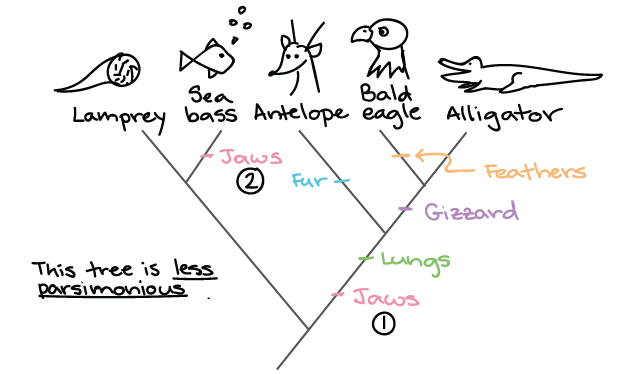 Lamprey
Sea
bass
Antelope
Bald
eagle
Alligator
Jaws
②
Fur
Feathers
Gizzard
Lungs
Jaws
①
This tree is less
parsimonious.